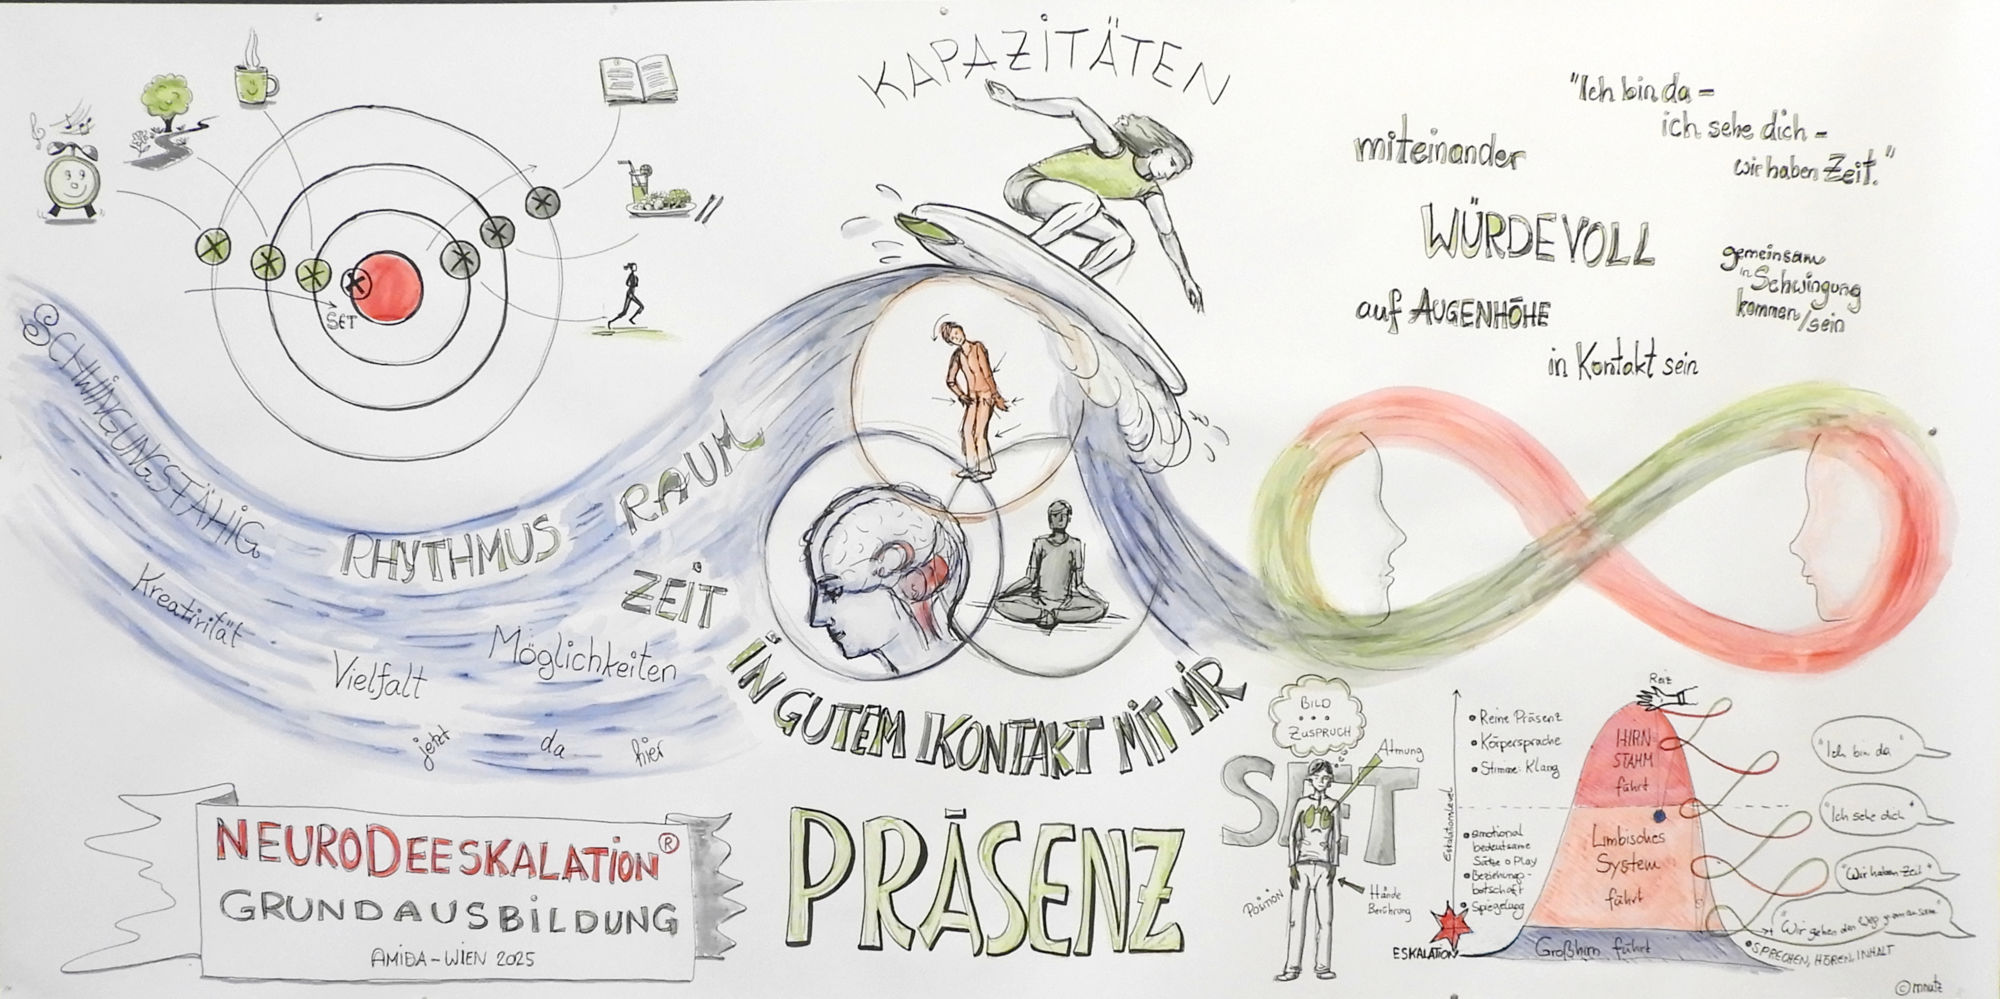 KAPAZITÄTEN
"Ich bin da –
ich sehe dich –
wir haben Zeit."
miteinander
WÜRDEVOLL
gemeinsam
in Schwingung
kommen/sein
auf AUGENHÖHE
in Kontakt sein
SET
SCHWINGUNGSFÄHIG
RHYTHMUS
RAUM
ZEIT
Kreativität
Vielfalt
Möglichkeiten
jetzt
da
hier
IN GUTEM KONTAKT MIT MIR
PRÄSENZ
NEURODEESKALATION®
GRUNDAUSBILDUNG
AMIDA – WIEN 2025
BILD
...
ZUSPRUCH
SET
Atmung
Position
Hände
Berührung
Eskalationslevel
• Reine Präsenz
• Körpersprache
• Stimme: Klang
• emotional
bedeutsame
Sätze o Play
• Beziehungs-
botschaft
• Spiegelung
ESKALATION
Reiz
HIRN
STAMM
führt
Limbisches
System
führt
Großhirn führt
"Ich bin da"
"Ich sehe dich"
"Wir haben Zeit"
"Wir gehen den Weg gemeinsam"
• SPRECHEN, HÖREN, INHALT
© mnutz